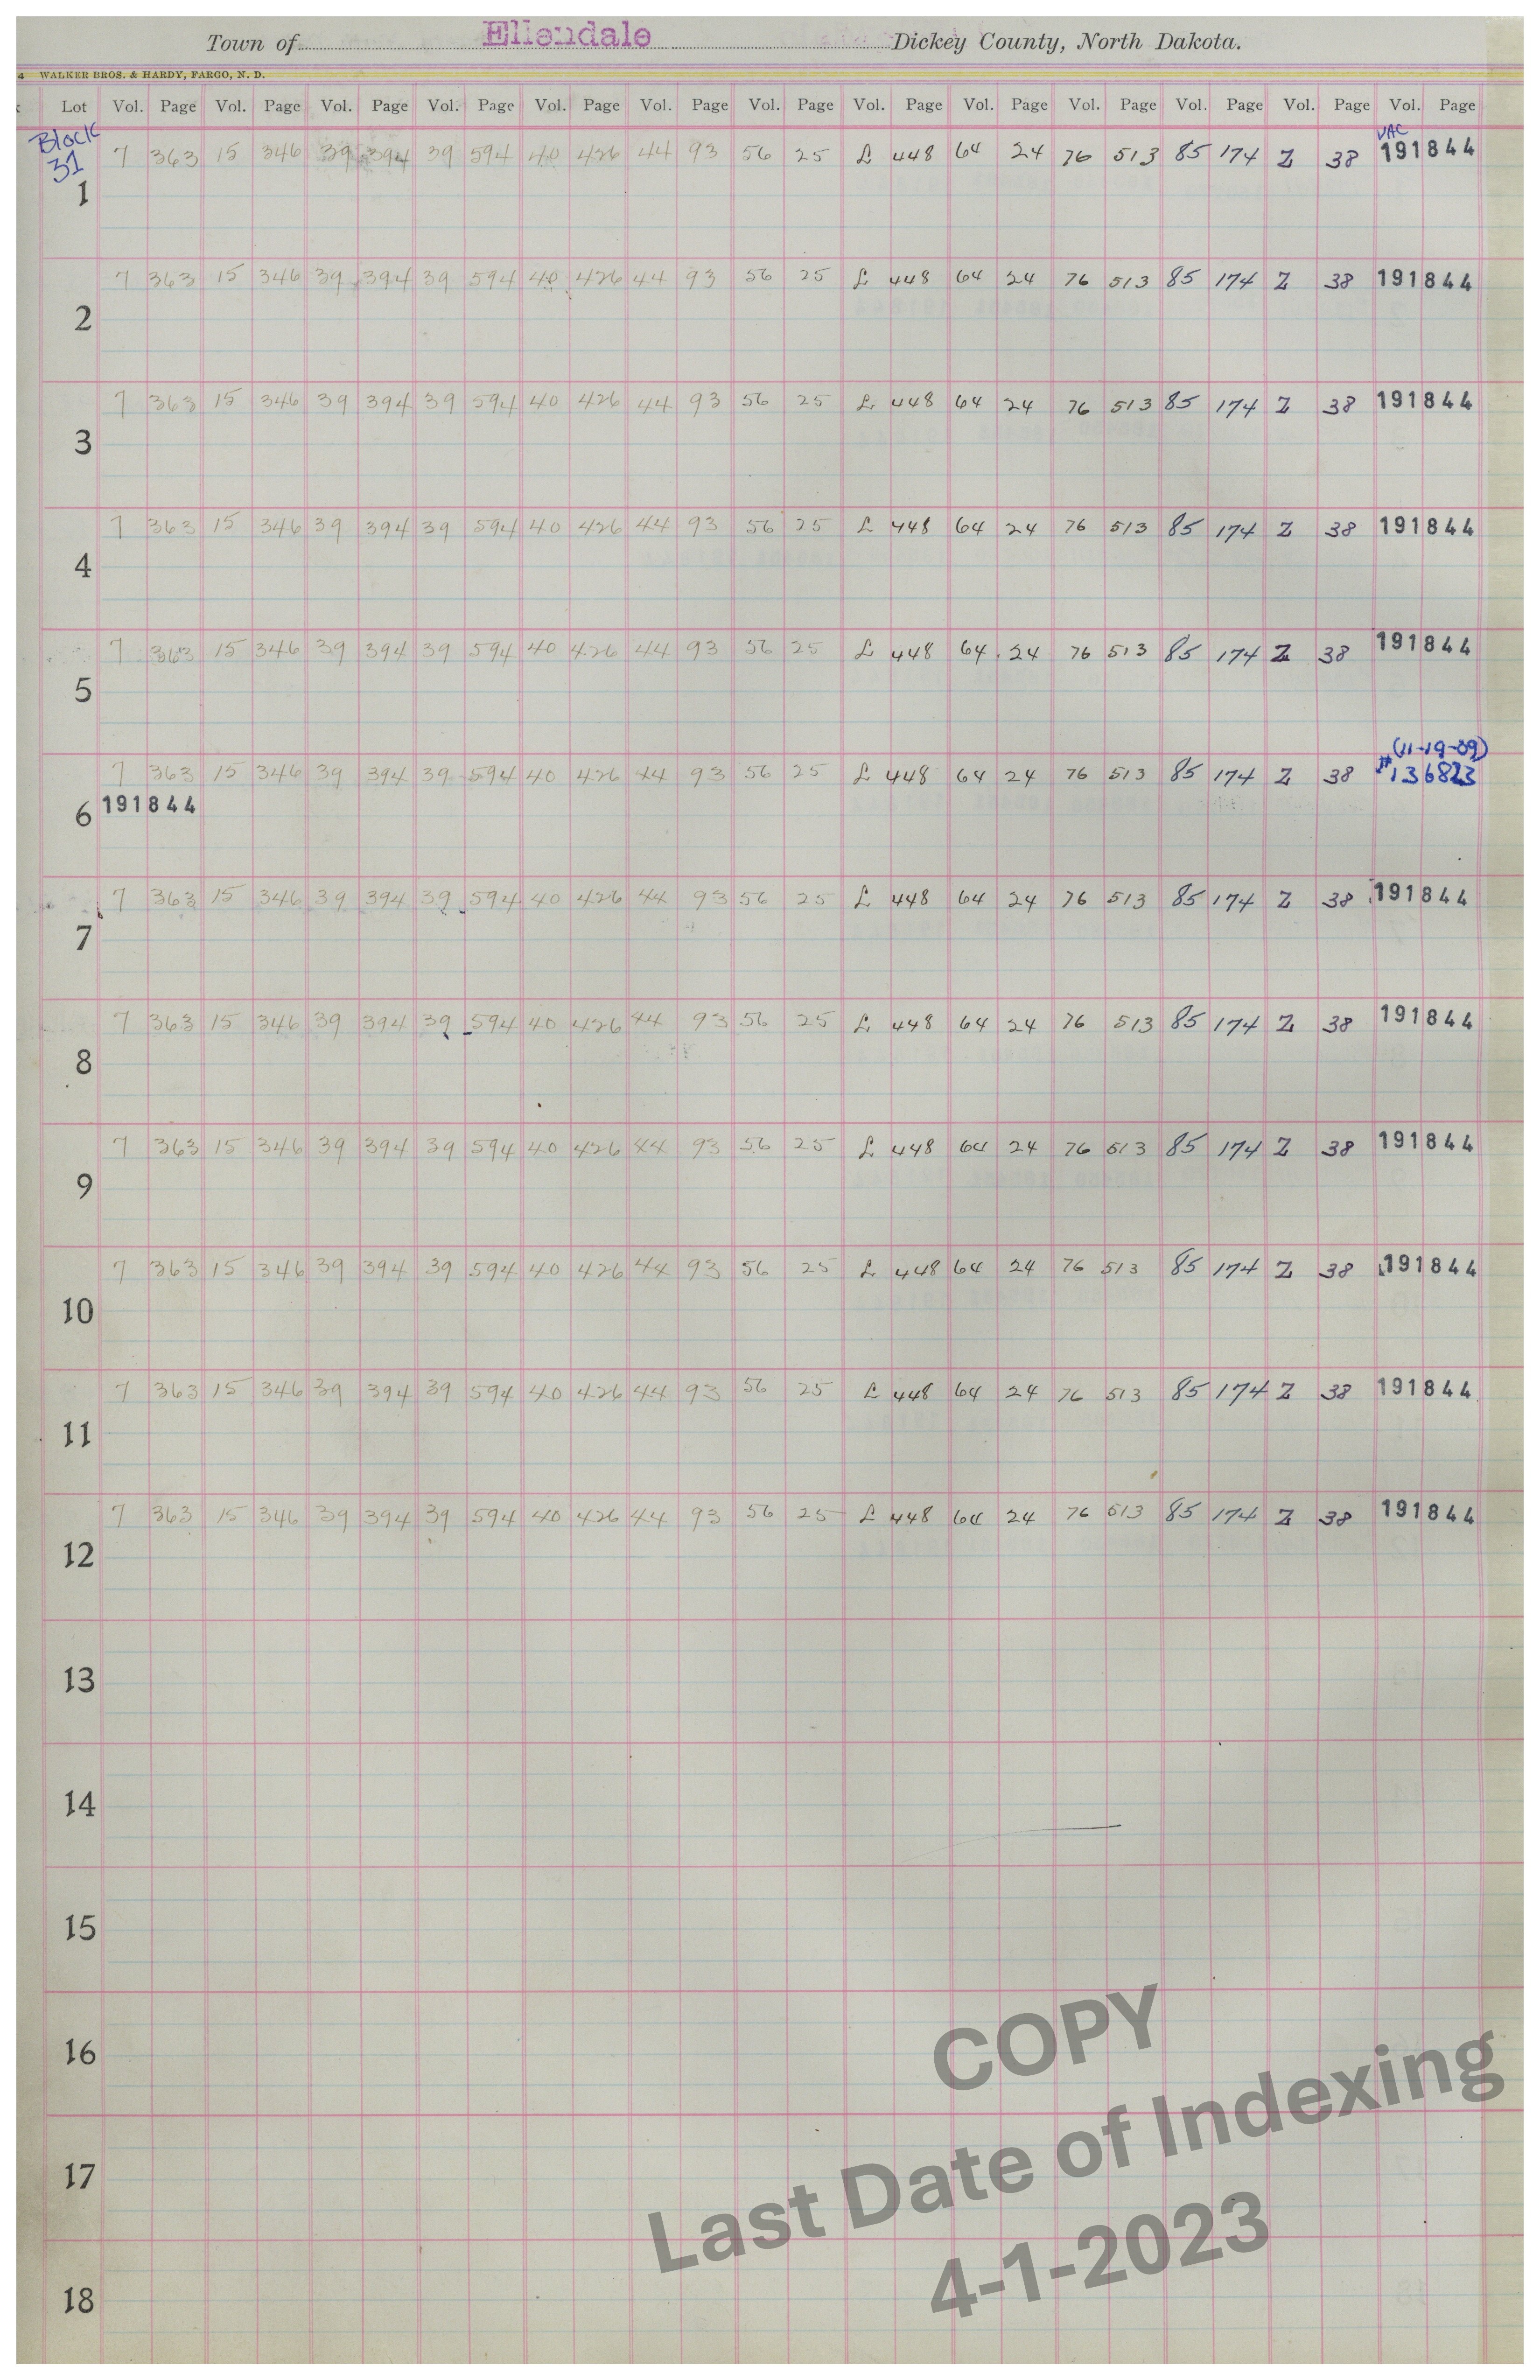 Town of Ellendale Dickey County, North Dakota.
4 WALKER BROS. & HARDY, FARGO, N. D.
Lot Vol. Page Vol. Page Vol. Page Vol. Page Vol. Page Vol. Page Vol. Page Vol. Page Vol. Page Vol. Page Vol. Page Vol. Page Vol. Page
Block
31
VAC
7 363 15 346 39 394 39 594 40 426 44 93 56 25 L 448 64 24 76 513 85 174 Z 38 191844
1
7 363 15 346 39 394 39 594 40 426 44 93 56 25 L 448 64 24 76 513 85 174 Z 38 191844
2
7 363 15 346 39 394 39 594 40 426 44 93 56 25 L 448 64 24 76 513 85 174 Z 38 191844
3
7 363 15 346 39 394 39 594 40 426 44 93 56 25 L 448 64 24 76 513 85 174 Z 38 191844
4
7 363 15 346 39 394 39 594 40 426 44 93 56 25 L 448 64 24 76 513 85 174 Z 38 191844
5
(11-19-09)
7 363 15 346 39 394 39 594 40 426 44 93 56 25 L 448 64 24 76 513 85 174 Z 38 #136823
6 191844
7 363 15 346 39 394 39 594 40 426 44 93 56 25 L 448 64 24 76 513 85 174 Z 38 191844
7
7 363 15 346 39 394 39 594 40 426 44 93 56 25 L 448 64 24 76 513 85 174 Z 38 191844
8
7 363 15 346 39 394 39 594 40 426 44 93 56 25 L 448 64 24 76 513 85 174 Z 38 191844
9
7 363 15 346 39 394 39 594 40 426 44 93 56 25 L 448 64 24 76 513 85 174 Z 38 191844
10
7 363 15 346 39 394 39 594 40 426 44 93 56 25 L 448 64 24 76 513 85 174 Z 38 191844
11
7 363 15 346 39 394 39 594 40 426 44 93 56 25 L 448 64 24 76 513 85 174 Z 38 191844
12
13
14
15
16
17
18
COPY
Last Date of Indexing
4-1-2023